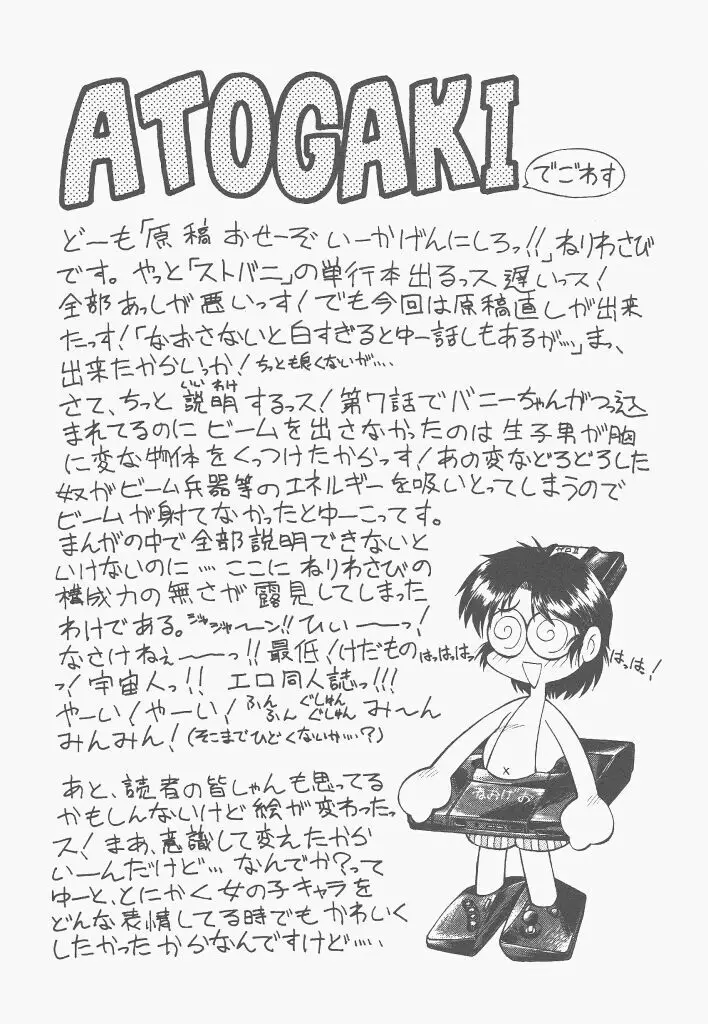 ATOGAKI
でごわす
どーも「原稿おせーぞいーかげんにしろっ!!」ねりわさび
です。やっと「ストバニ」の単行本出るっス遅いっス!
全部あっしが悪いっす!でも今回は原稿直しが出来
たっす!「なおさないと白すぎるとゆー話しもあるが…」まっ、
出来たからいっか!ちっとも良くないが….
さて、ちっと説明するっス!第7話でバニーちゃんがつっ込
いいわけ
まれてるのにビームを出さなかったのは生子男が胸
に変な物体をくっつけたからっす!あの変などろどろした
奴がビーム兵器等のエネルギーを吸いとってしまうので
ビームが射てなかったとゆーこってす。
まんがの中で全部説明できないと
いけないのに…ここにねりわさびの
構成力の無さが露見してしまった
わけである。ジャジャ〜ン!!ひぃ〜〜っ!
なさけねぇ〜〜っ!!最低!けだもの
っ!宇宙人っ!!エロ同人誌っ!!!
やーい!やーい!ふんふんぐしゅんぐしゅんみ〜ん
みんみん!(そこまでひどくないか…?)
はっはっはっ
はっは!
あと、読者の皆しゃんも思ってる
かもしんないけど絵が変わったっ
ス!まあ、意識して変えたから
いーんだけど…なんでか?って
ゆーと、とにかく女の子キャラを
どんな表情してる時でもかわいく
したかったからなんですけど….
ねおげお